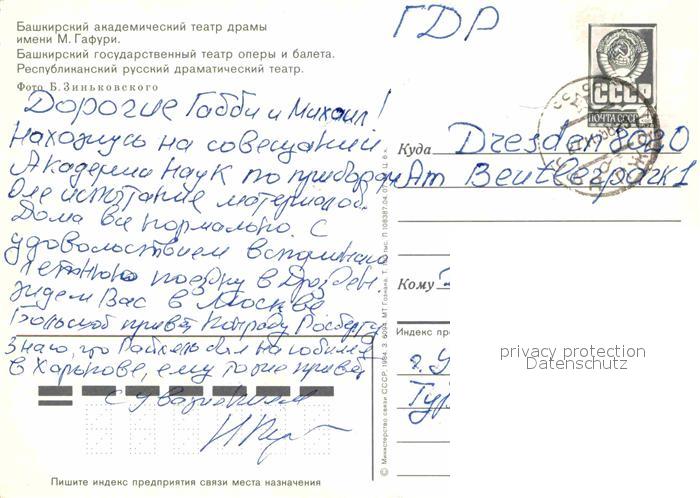 Башкирский академический театр драмы
имени М. Гафури.
Башкирский государственный театр оперы и балета.
Республиканский русский драматический театр.
Фото Б. Зиньковского
ГДР
СССР
ПОЧТА СССР
Дорогие Габби и Михаил!
Нахожусь на совещании
Академии Наук по приборам
для испытание материалов.
Дома все нормально. С
удовольствием вспоминаю
летнюю поездку в Дрезден
ждем Вас в Москве
Большой привет Конраду Росберту
Знаю, что Райхель был на юбилее
в Харькове, ему тоже привет
с уважением
Куда Dresden 8020
Am Beutlerpark 1
Кому
Индекс пр
г. У
Тур
privacy protection
Datenschutz
© Министерство связи СССР, 1984. З. 6094. МТ Гознака.
Пишите индекс предприятия связи места назначения